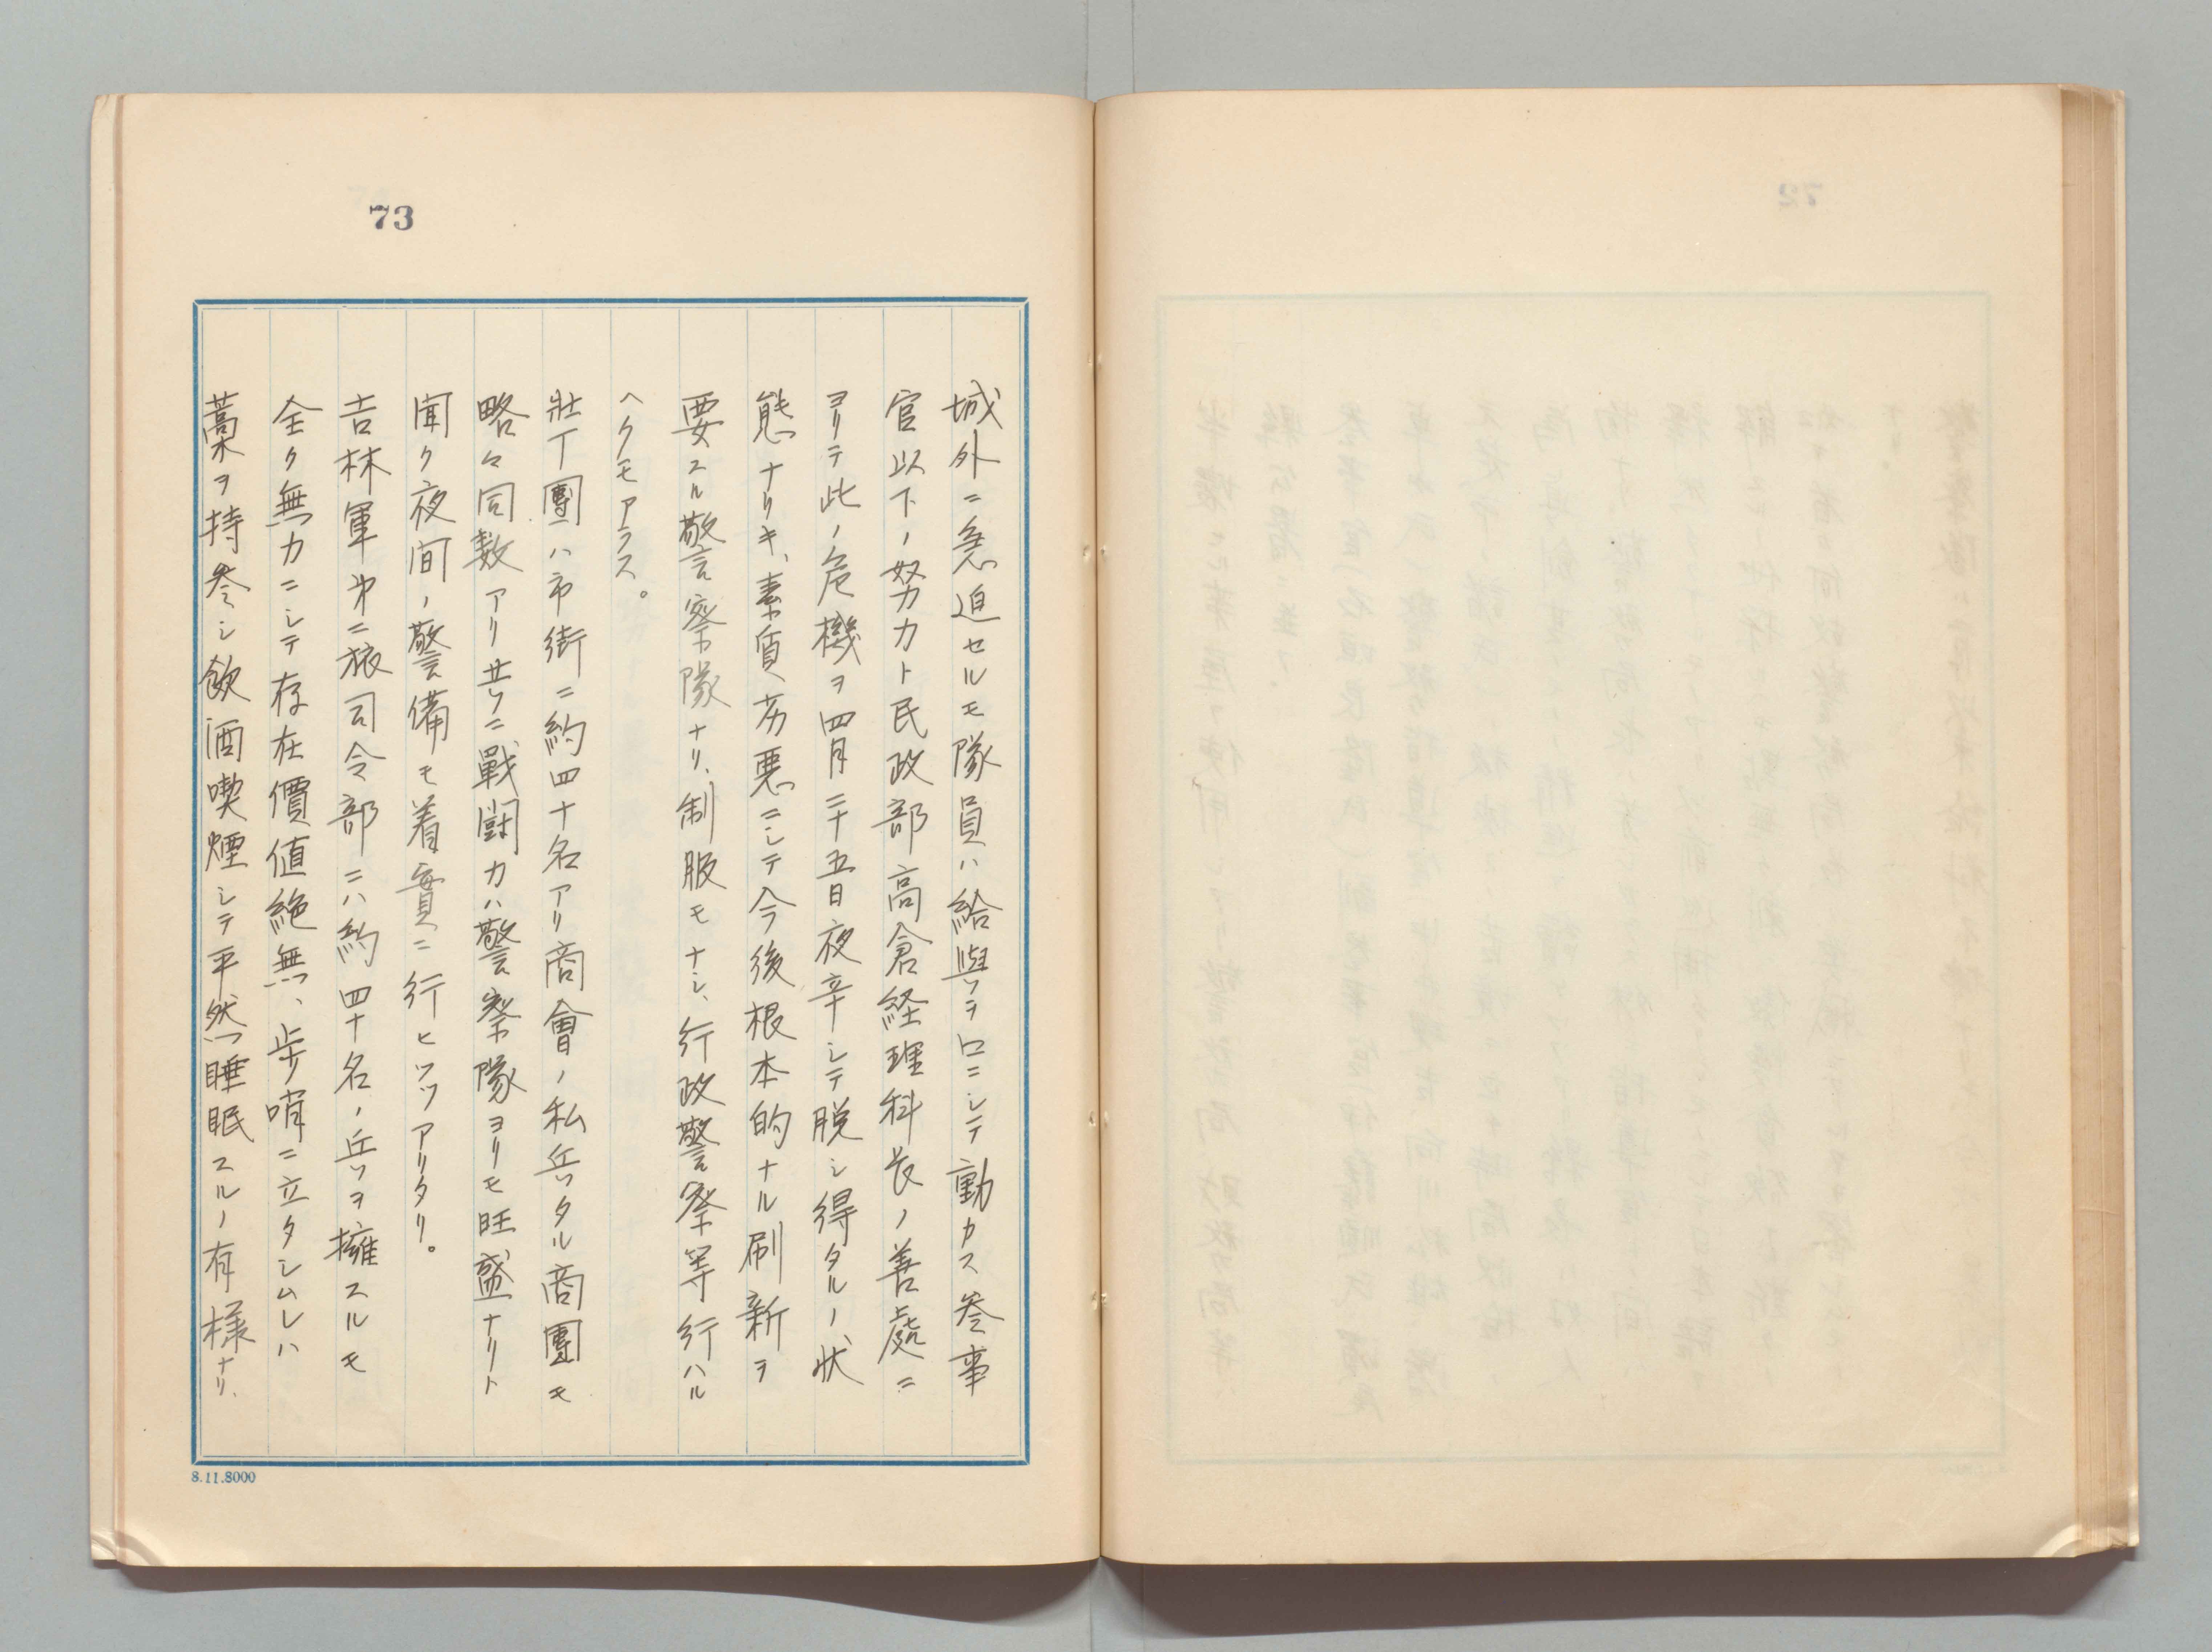 73
城外ニ急迫セルモ隊員ハ給與ヲ口ニシテ動カス参事
官以下ノ努力ト民政部高倉経理科長ノ善處ニ
ヨリテ此ノ危機ヲ四月二十五日夜辛シテ脱シ得タルノ状
態ナリキ、素質劣悪ニシテ今後根本的ナル刷新ヲ
要スル警察隊ナリ、制服モナシ、行政警察等行ハル
ヘクモアラス。
壮丁團ハ市街ニ約四十名アリ商會ノ私兵タル商團モ
略々同数アリ共ニ戰闘力ハ警察隊ヨリモ旺盛ナリト
聞ク夜間ノ警備モ着實ニ行ヒツツアリタリ。
吉林軍第二旅司令部ニハ約四十名ノ兵ヲ擁スルモ
全ク無力ニシテ存在價値絶無、歩哨ニ立タシムレハ
藁ヲ持参シ飲酒喫煙シテ平然睡眠スルノ有様ナリ、
8.11.8000
72